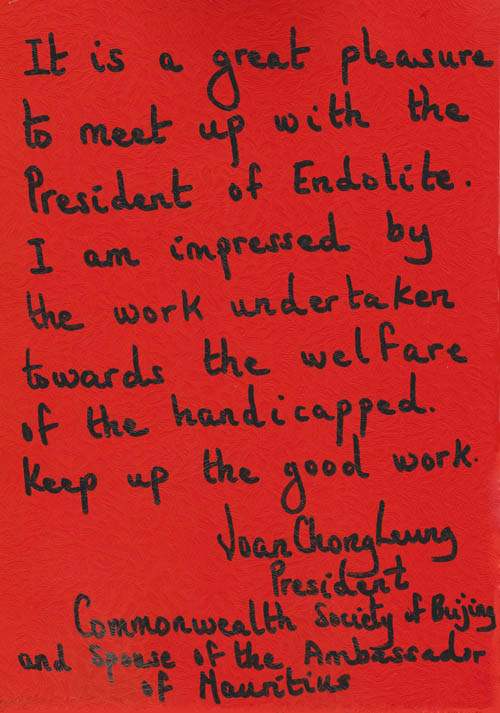 It is a great pleasure
to meet up with the
President of Endolite.
I am impressed by
the work undertaken
towards the welfare
of the handicapped.
Keep up the good work.
Joan Chong Leung
President
Commonwealth Society of Beijing
and Spouse of the Ambassador
of Mauritius